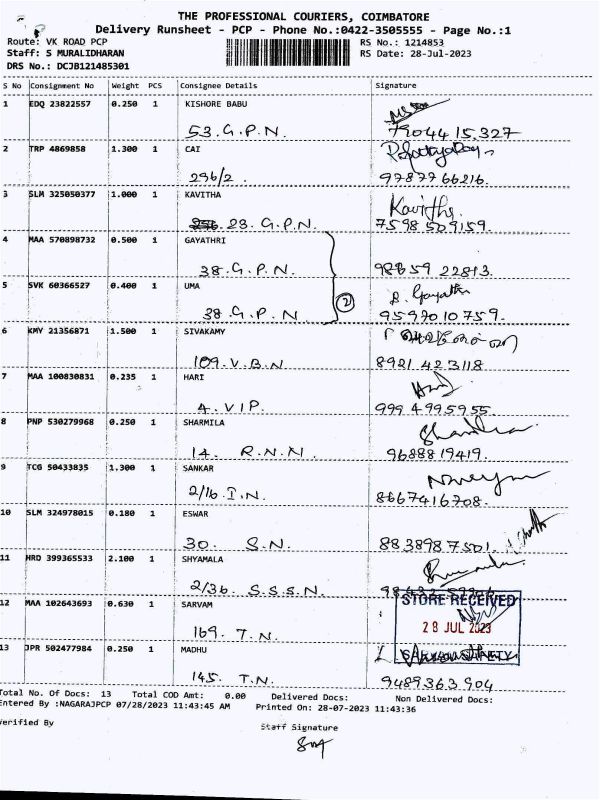 THE PROFESSIONAL COURIERS, COIMBATORE
Delivery Runsheet - PCP - Phone No.:0422-3505555 - Page No.:1
Route: VK ROAD PCP RS No.: 1214853
Staff: S MURALIDHARAN RS Date: 28-Jul-2023
DRS No.: DCJB121485301
S No Consignment No Weight PCS Consignee Details Signature
1 EDQ 23822557 0.250 1 KISHORE BABU
53. G.P.N. 7904415327
2 TRP 4869858 1.300 1 CAI
296/2. 9787766216.
3 SLM 325050377 1.000 1 KAVITHA Kavitha.
23. G.P.N. 7598509159.
4 MAA 570898732 0.500 1 GAYATHRI
38. G.P.N. 98659 22813.
5 SVK 60366527 0.400 1 UMA
38. G.P.N. 2 9597010759.
6 KMY 21356871 1.500 1 SIVAKAMY
109. V.B.N 8921423118
7 MAA 100830831 0.235 1 HARI
4. VIP. 9994995955.
8 PNP 530279968 0.250 1 SHARMILA
14. R.N.N. 9688819419.
9 TCG 50433835 1.300 1 SANKAR
2/16. I.N. 8667416708.
10 SLM 324978015 0.180 1 ESWAR
30. S.N. 8838987501.
11 HRD 399365533 2.100 1 SHYAMALA
2/36. S.S.S.N.
12 MAA 102643693 0.630 1 SARVAM STORE RECEIVED
169. T.N. 28 JUL 2023
13 JPR 502477984 0.250 1 MADHU
145. T.N. 9489363904
Total No. Of Docs: 13 Total COD Amt: 0.00 Delivered Docs: Non Delivered Docs:
Entered By :NAGARAJPCP 07/28/2023 11:43:45 AM Printed On: 28-07-2023 11:43:36
Verified By Staff Signature